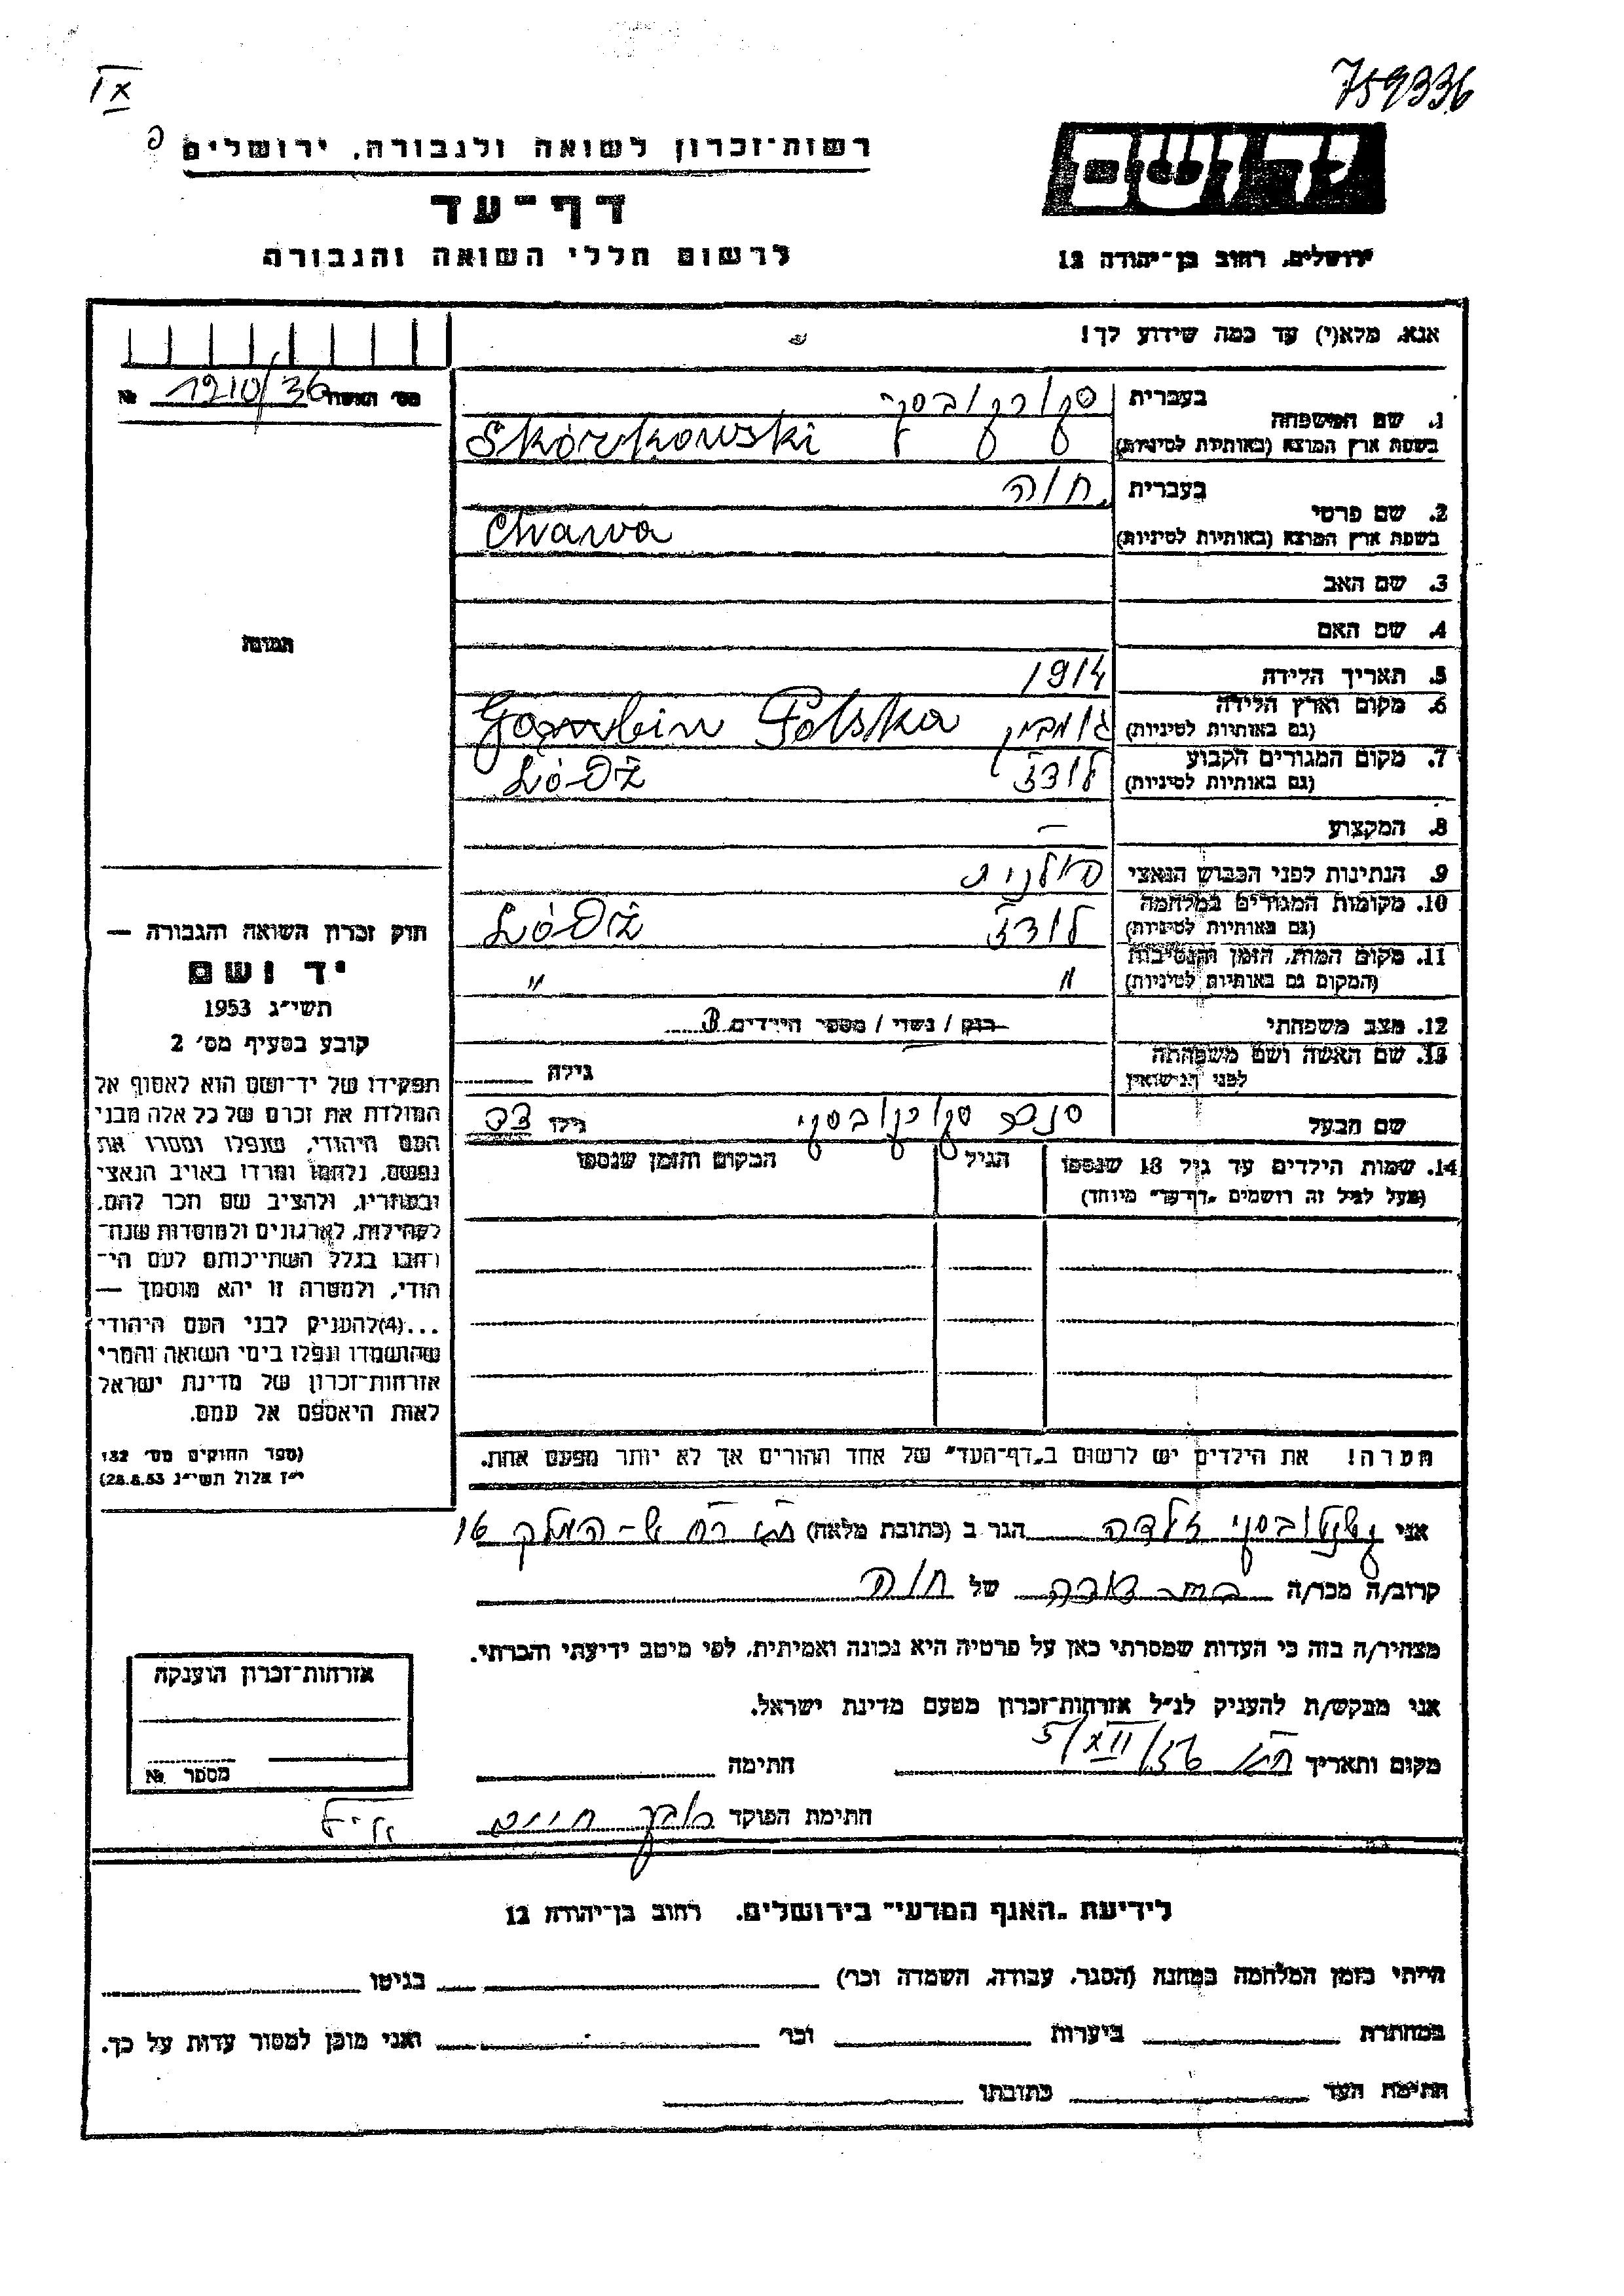 759336
רשות־זכרון לשואה ולגבורה, ירושלים
יד ושם
דף־עד
לרשום חללי השואה והגבורה
ירושלים, רחוב בן־יהודה 12
אנא, מלא(י) עד כמה שידוע לך!
מס׳ האשה 1210/36 №
1. שם המשפחה
בעברית סקורקובסקי
בשפת ארץ המוצא (באותיות לטיניות) Skórkowski
2. שם פרטי
בעברית חוה
בשפת ארץ המוצא (באותיות לטיניות) Chawa
3. שם האב
4. שם האם
תמונה
5. תאריך הלידה 1914
6. מקום וארץ הלידה
(גם באותיות לטיניות) גומבין Gombin Polska
7. מקום המגורים הקבוע
(גם באותיות לטיניות) לודז Łódź
8. המקצוע —
9. הנתינות לפני הכבוש הנאצי פולנית
10. מקומות המגורים במלחמה
(גם באותיות לטיניות) לודז Łódź
11. מקום המות, הזמן והנסיבות
(המקום גם באותיות לטיניות) " "
12. מצב משפחתי רווק / נשוי / מספר הילדים
13. שם האשה ושם משפחתה
לפני הנישואין גילה
שם הבעל סקורקובסקי גילו
14. שמות הילדים עד גיל 18 שנספו
(מעל לגיל זה רושמים „דף־עד״ מיוחד)
הגיל
המקום והזמן שנספו
חוק זכרון השואה והגבורה —
יד ושם
תשי״ג 1953
קובע בסעיף מס׳ 2
תפקידו של יד־ושם הוא לאסוף אל
המולדת את זכרם של כל אלה מבני
העם היהודי, שנפלו ומסרו את
נפשם, נלחמו ומרדו באויב הנאצי
ובעוזריו, ולהציב שם וזכר להם,
לקהילות, לארגונים ולמוסדות שנח־
רבו בגלל השתייכותם לעם הי־
הודי, ולמטרה זו יהא מוסמך —
...(4)להעניק לבני העם היהודי
שהושמדו ונפלו בימי השואה והמרי
אזרחות־זכרון של מדינת ישראל
לאות היאספם אל עמם.
(ספר החוקים מס׳ 132
י״ז אלול תשי״ג 28.8.53)
הערה! את הילדים יש לרשום ב„דף־העד״ של אחד ההורים אך לא יותר מפעם אחת.
אני זלדה הגר ב (כתובת מלאה) 16
קרוב/ה מכר/ה בת דודה של חוה
מצהיר/ה בזה כי העדות שמסרתי כאן על פרטיה היא נכונה ואמיתית, לפי מיטב ידיעתי והכרתי.
אני מבקש/ת להעניק לנ״ל אזרחות־זכרון מטעם מדינת ישראל.
מקום ותאריך 5/XII/56 חתימה
חתימת הפוקד חיים
אזרחות־זכרון הוענקה
מספר №
לידיעת „האגף המדעי״ בירושלים, רחוב בן־יהודה 12
הייתי בזמן המלחמה במחנה (הסגר, עבודה, השמדה וכו׳) בגיטו
במחתרת ביערות וכו׳ ואני מוכן למסור עדות על כך.
חתימת העד כתובתו